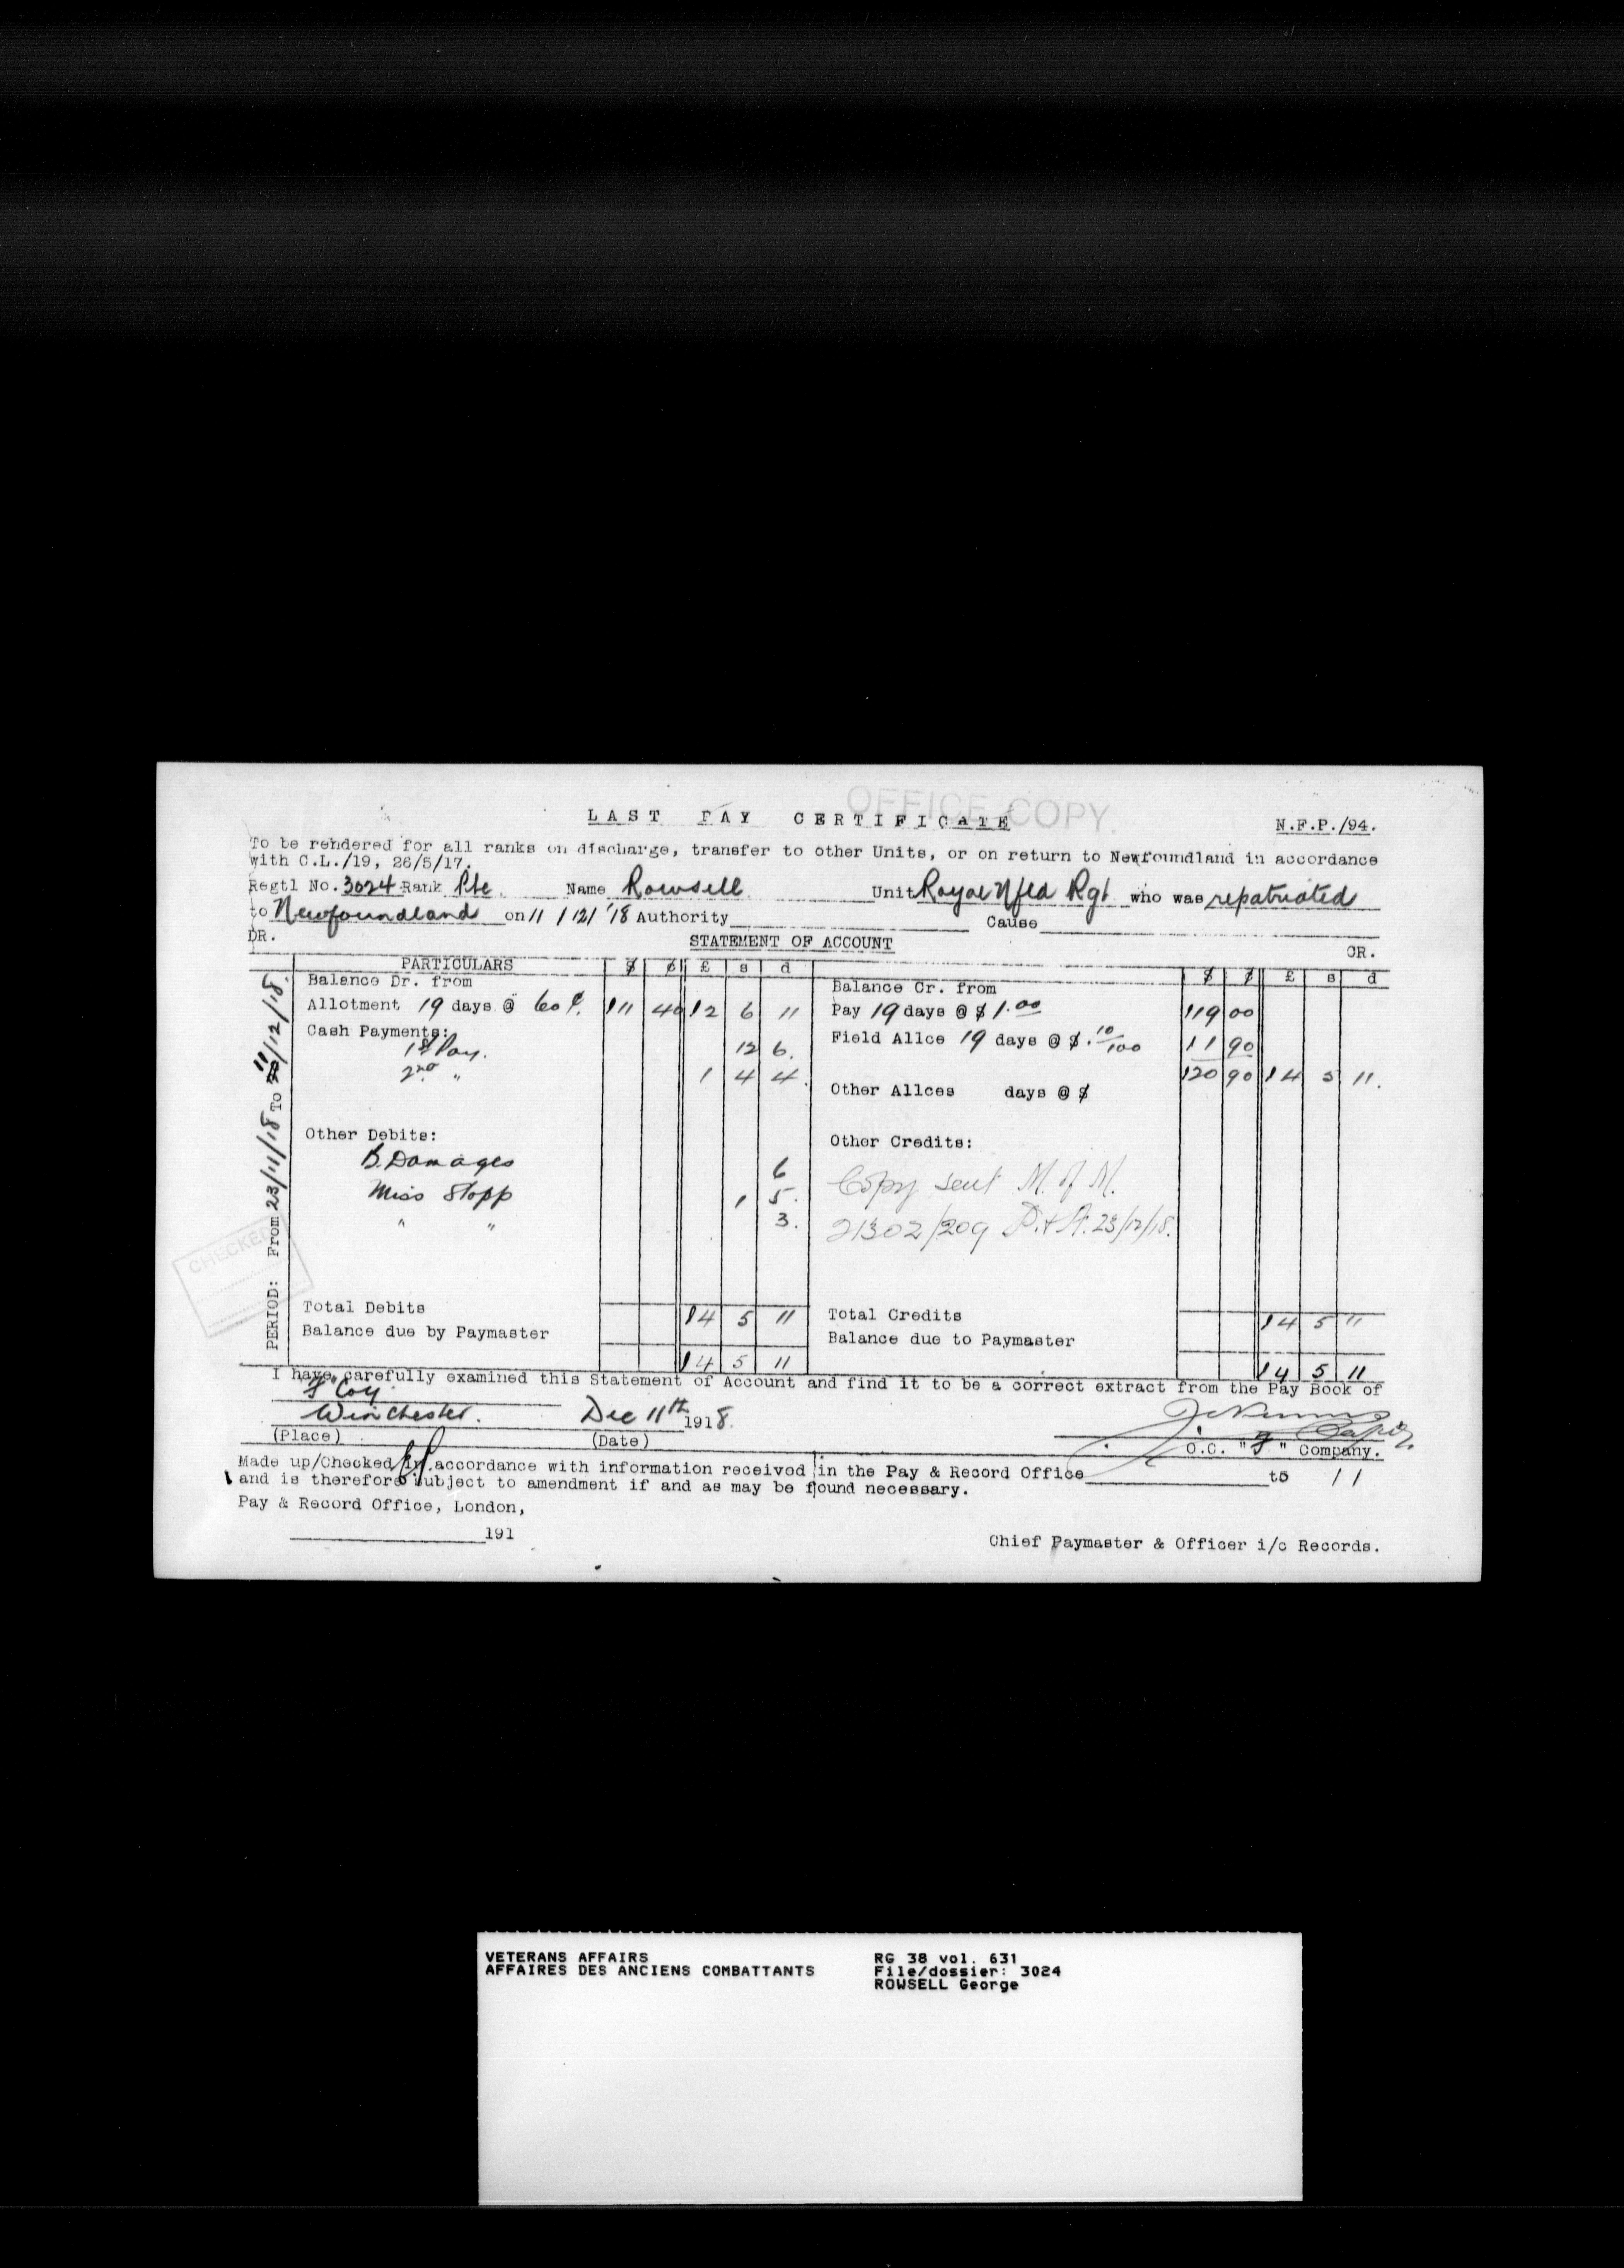 OFFICE COPY
LAST PAY CERTIFICATE
N.F.P./94.
To be rendered for all ranks on discharge, transfer to other Units, or on return to Newfoundland in accordance
with C.L./19, 26/5/17.
Regtl No. 3024 Rank Pte Name Rowsell Unit Royal Nfld Rgt who was repatriated
to Newfoundland on 11/12/'18 Authority Cause
DR. STATEMENT OF ACCOUNT CR.
PERIOD: From 23/11/18 To 11/12/18.
PARTICULARS $ ¢ £ s d $ ¢ £ s d
Balance Dr. from Balance Cr. from
Allotment 19 days @ 60¢. 11 40 2 6 11 Pay 19 days @ $ 1.00 19 00
Cash Payments: Field Allce 19 days @ $ .10/100 1 90
1st Pay. 12 6.
2nd " 1 4 4. 20 90 4 5 11.
Other Allces days @ $
Other Debits: Other Credits:
B. Damages 6
Copy sent M. of M.
Miss Stopp 1 5.
" " 3.
21302/209 P.&A. 23/12/18.
CHECKED
Total Debits 4 5 11 Total Credits 4 5 11
Balance due by Paymaster Balance due to Paymaster
4 5 11 4 5 11
I have carefully examined this Statement of Account and find it to be a correct extract from the Pay Book of
"F" Coy.
Winchester. Dec 11th 1918
(Place) (Date) O.C. "F" Company.
Made up/Checked in accordance with information received in the Pay & Record Office to 11
and is therefore subject to amendment if and as may be found necessary.
Pay & Record Office, London,
191
Chief Paymaster & Officer i/c Records.
VETERANS AFFAIRS RG 38 vol. 631
AFFAIRES DES ANCIENS COMBATTANTS File/dossier: 3024
ROWSELL George